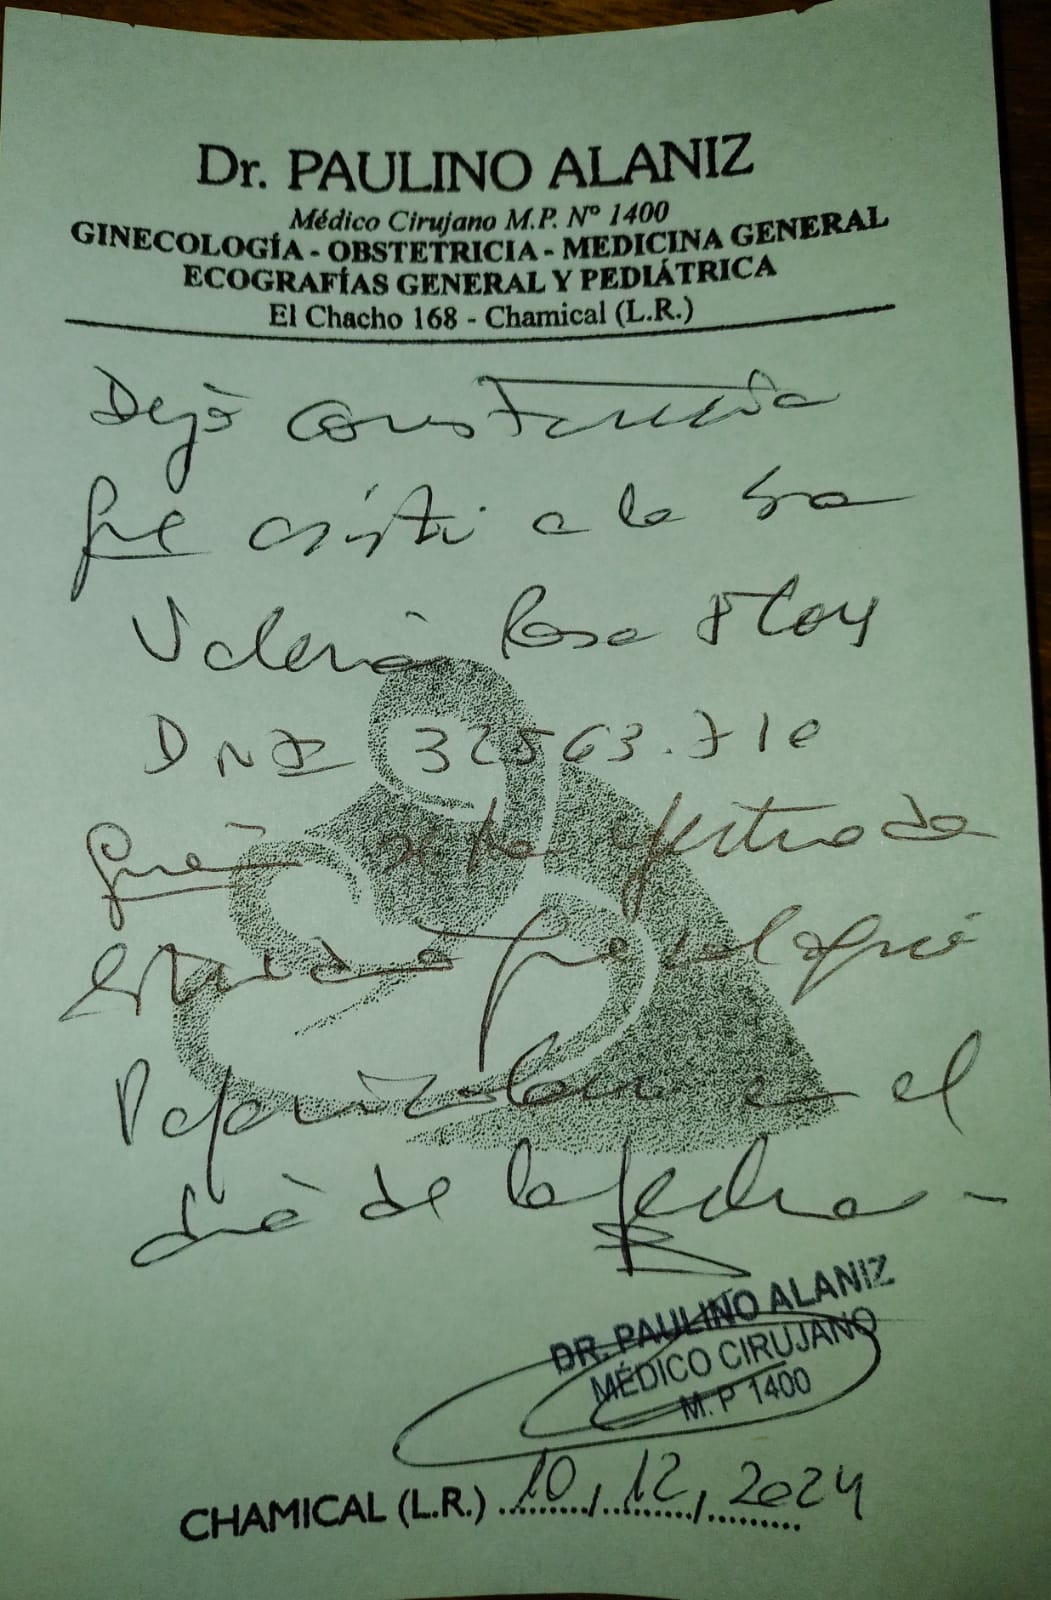 Dr. PAULINO ALANIZ
Médico Cirujano M.P. Nº 1400
GINECOLOGÍA - OBSTETRICIA - MEDICINA GENERAL
ECOGRAFÍAS GENERAL Y PEDIÁTRICA
El Chacho 168 - Chamical (L.R.)
Dejo constancia
que asistí a la Sra
Valeria Rosa
DNI 32563.710
quien se ha efectuado
estudio
Papanicolau en el
día de la fecha -
DR. PAULINO ALANIZ
MÉDICO CIRUJANO
M.P 1400
CHAMICAL (L.R.) 10, 12, 2024